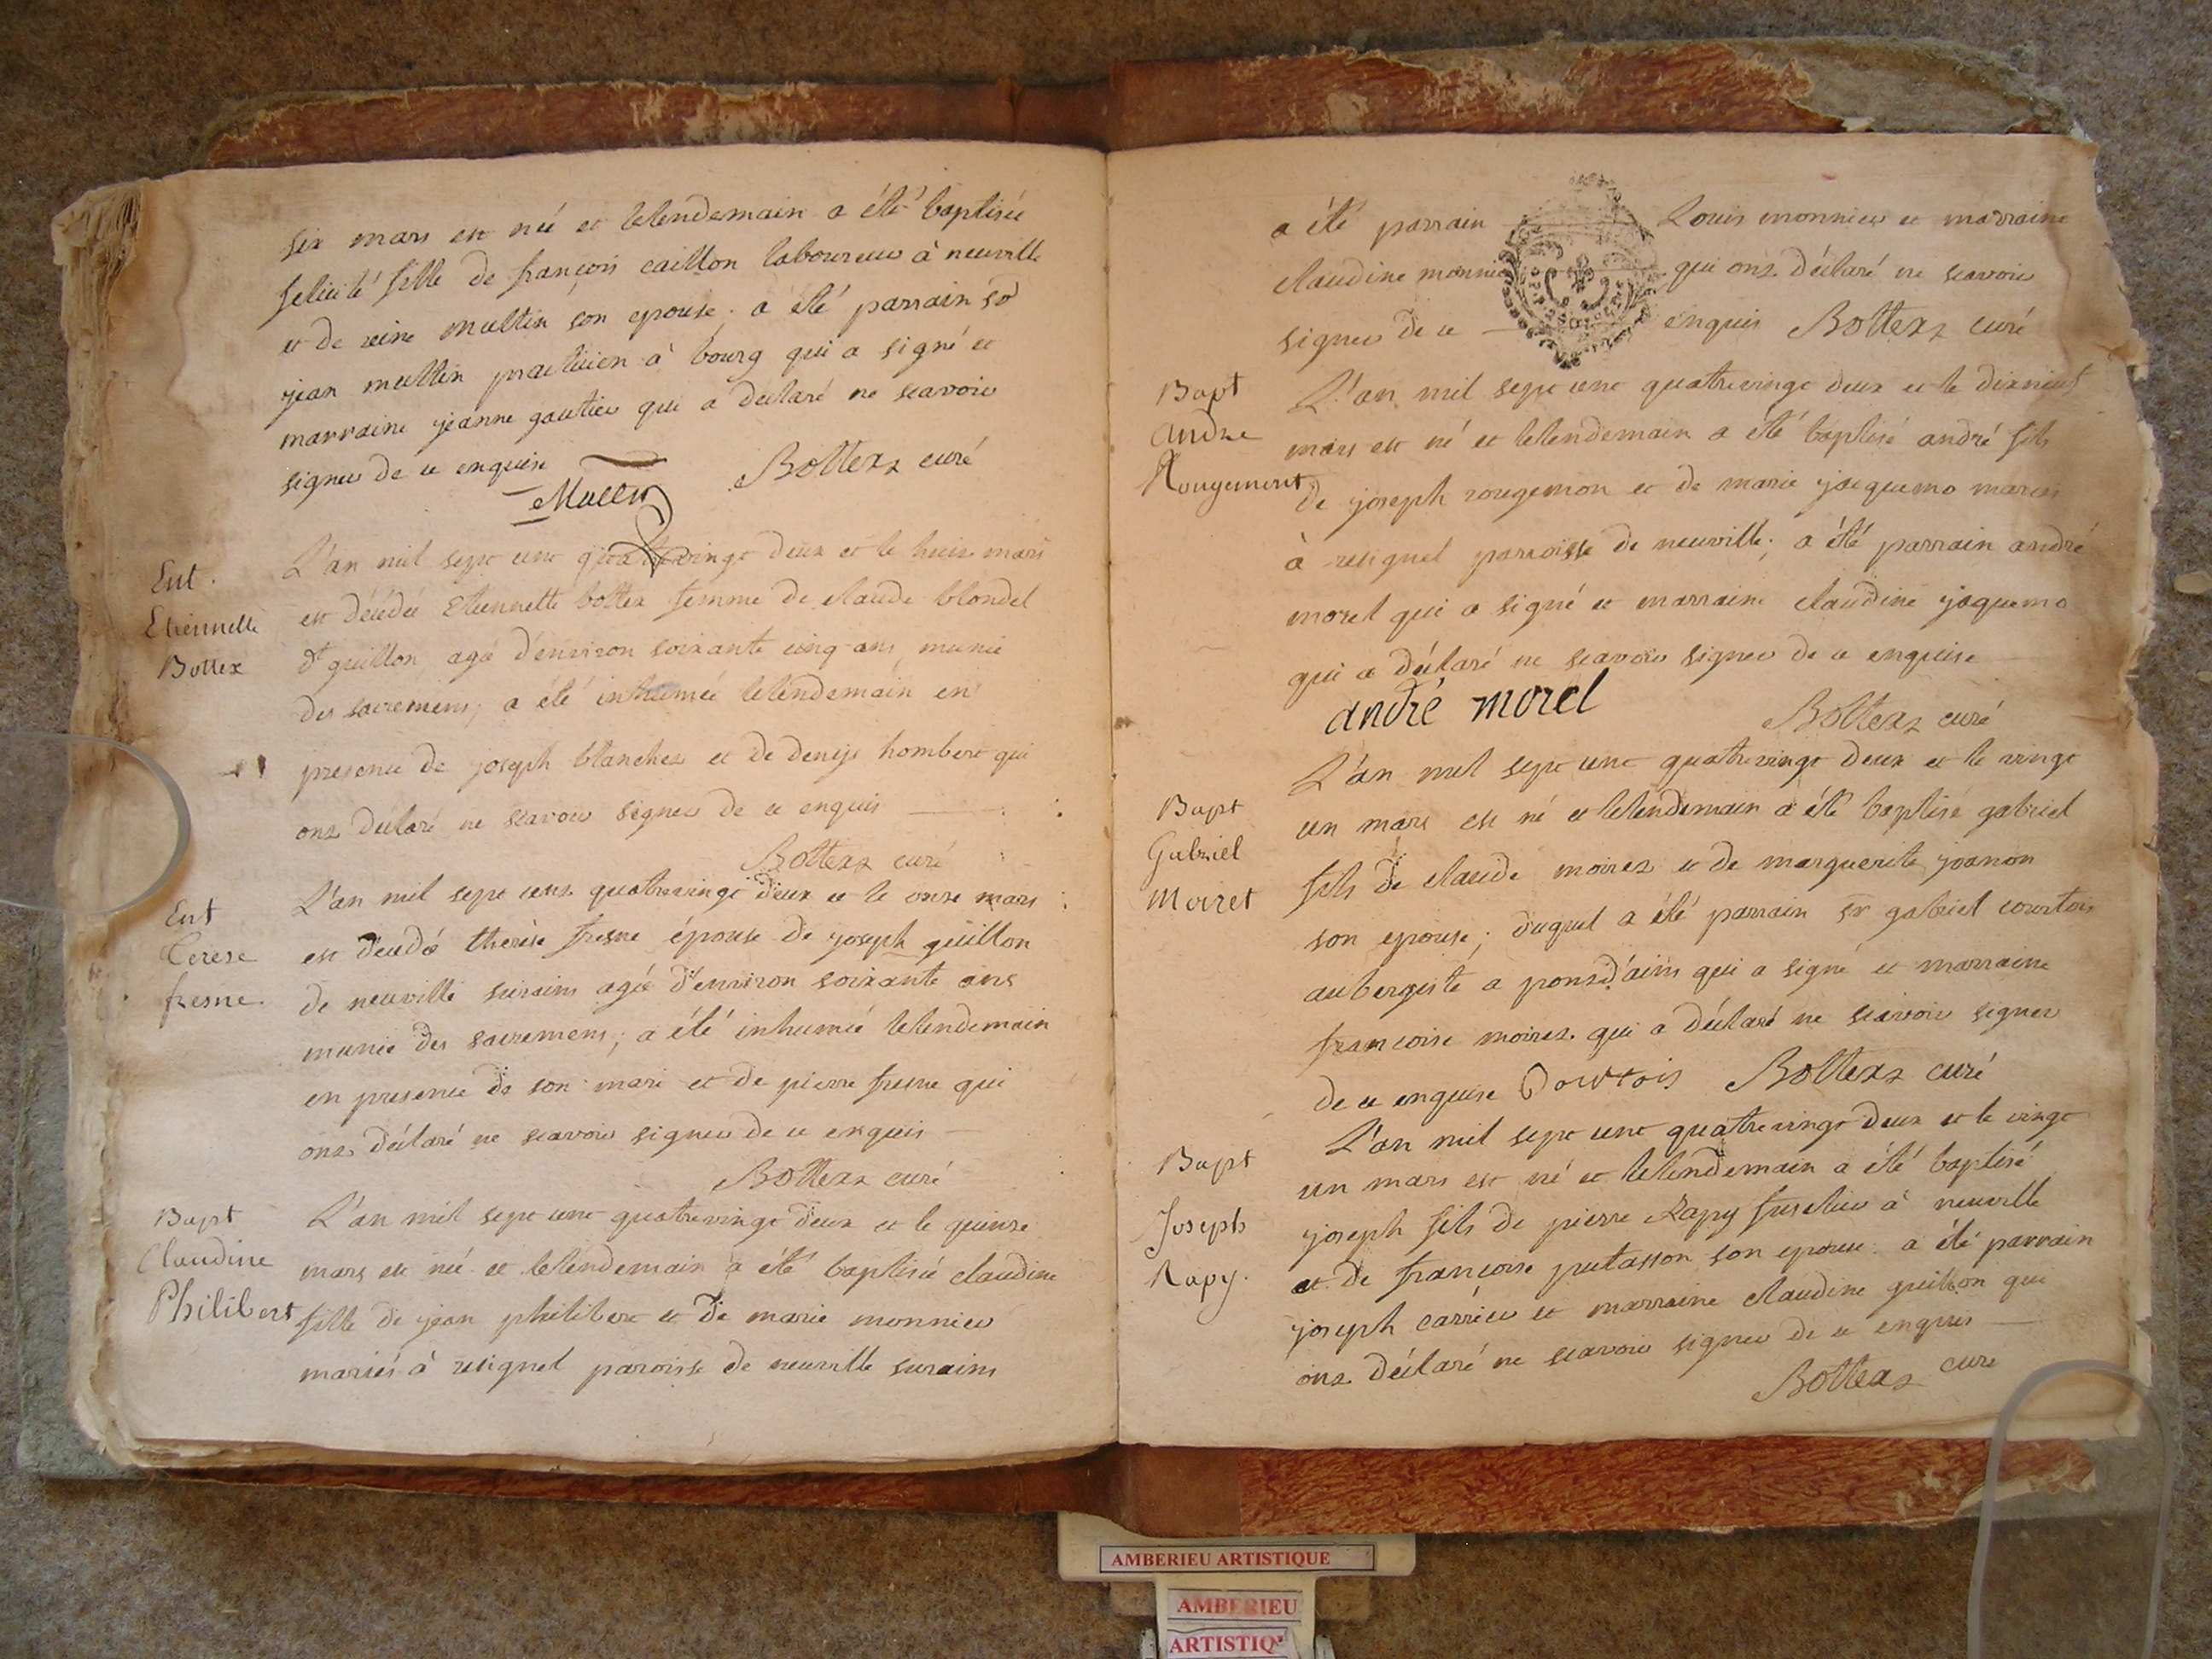 six mars est née et lelendemain a été baptisée
felicité fille de françois caillon laboureur à neuville
et de reine multin son epouse. a été parrain sr
jean multin practicien à bourg qui a signé et
marraine jeanne gautier qui a declaré ne scavoir
signer de ce enquise Bottex curé
Ent.
Etiennette
Bottex
L'an mil sept cent quatrevingt deux et le huit mars
est décédée Etiennette bottex femme de claude blondel
dt guillon, agée d'environ soixante cinq ans, munie
des sacremens, a été inhumée lelendemain en
presence de joseph blanchet et de denys hombert qui
ont déclaré ne scavoir signer de ce enquis
Bottex curé
Ent
Terese
fresne.
L'an mil sept cent quatrevingt deux et le onze mars
est décédé thérèse fresne épouse de joseph guillon
de neuville surains agée d'environ soixante ans
munie des sacremens; a été inhumée lelendemain
en presence de son mari et de pierre fresne qui
ont déclaré ne scavoir signer de ce enquis
Bottex curé
Bapt
Claudine
Philibert
L'an mil sept cent quatrevingt deux et le quinze
mars est née et lelendemain a été baptisée claudine
fille de jean philibert et de marie monnier
mariés à resignel paroisse de neuville surains
a été parrain Louis monnier et marraine
claudine monnier qui ont déclaré ne scavoir
signer de ce enquis Bottex curé
Bapt
André
Rougemont
L'an mil sept cent quatrevingt deux et le dixneuf
mars est né et lelendemain a été baptisé andré fils
de joseph rougemon et de marie jaquemo mariés
à resignel parroisse de neuville; a été parrain andré
morel qui a signé et marraine claudine jaquemo
qui a déclaré ne scavoir signer de ce enquise
andré morel Bottex curé
Bapt
Gabriel
Moiret
L'an mil sept cent quatrevingt deux et le vingt
un mars est né et lelendemain a été baptisé gabriel
fils de claude moiret et de marguerite joanon
son epouse; duquel a été parrain sr gabriel courtois
aubergiste a pontd'ains qui a signé et marraine
francoise moiret qui a déclaré ne scavoir signer
de ce enquise Courtois Bottex curé
Bapt
Joseph
Rapy.
L'an mil sept cent quatrevingt deux et le vingt
un mars est né et lelendemain a été baptisé
joseph fils de pierre Rapy fuselier à neuville
et de francoise putasson son epouse. a été parrain
joseph carrier et marraine claudine guillon qui
ont déclaré ne scavoir signer de ce enquis
Bottex curé
AMBERIEU ARTISTIQUE
AMBERIEU
ARTISTIQ'